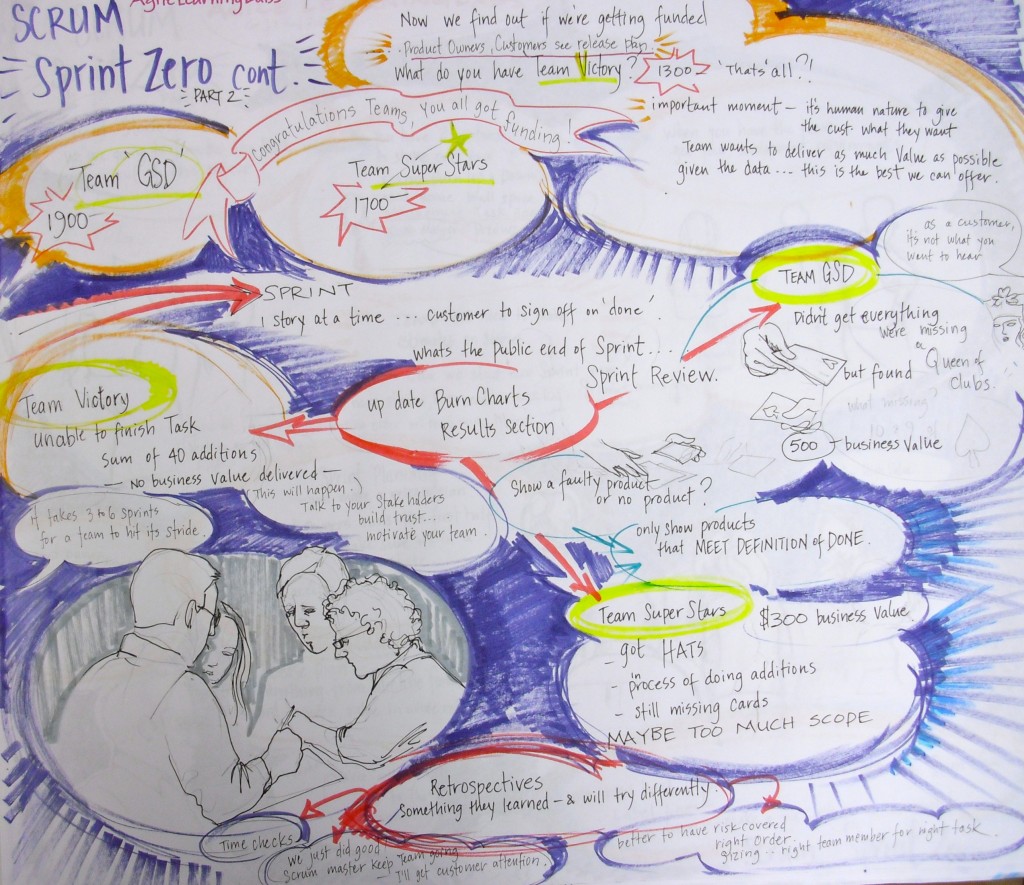 SCRUM Agile Learning Labs
Sprint Zero cont.
PART 2
Now we find out if we're getting funded
. Product Owners, Customers see release plan.
What do you have Team Victory?
1300-
'Thats' all?!
important moment - it's human nature to give
the cust. what they want
Team wants to deliver as much Value as possible
given the data... this is the best we can offer.
Congratulations Teams, you all got funding!
Team 'GSD'
1900-
Team Super Stars
1700-
SPRINT
1 story at a time ... customer to sign off on 'done'.
whats the Public end of Sprint...
Sprint Review.
as a customer,
it's not what you
want to hear
TEAM GSD
Didn't get everything
were missing
a
Queen of
Clubs.
but found
what missing?
500 - business value
up date Burn Charts
Results section
Team Victory
unable to finish Task
sum of 40 additions
- No business value delivered -
(This will happen.)
Talk to your Stakeholders
build trust...
motivate your team.
it takes 3 to 6 sprints
for a team to hit its stride.
Show a faulty product
or no product?
only show products
that MEET DEFINITION of DONE.
Team Super Stars
$300 business value.
- got HATS
- in process of doing additions
- still missing cards
MAYBE TOO MUCH SCOPE
Retrospectives
Something they learned - & will try differently.
Time checks
We just did good
Scrum master keep Team going
- I'll get customer attention.
better to have risk covered
right order
sizing... right team member for right task.